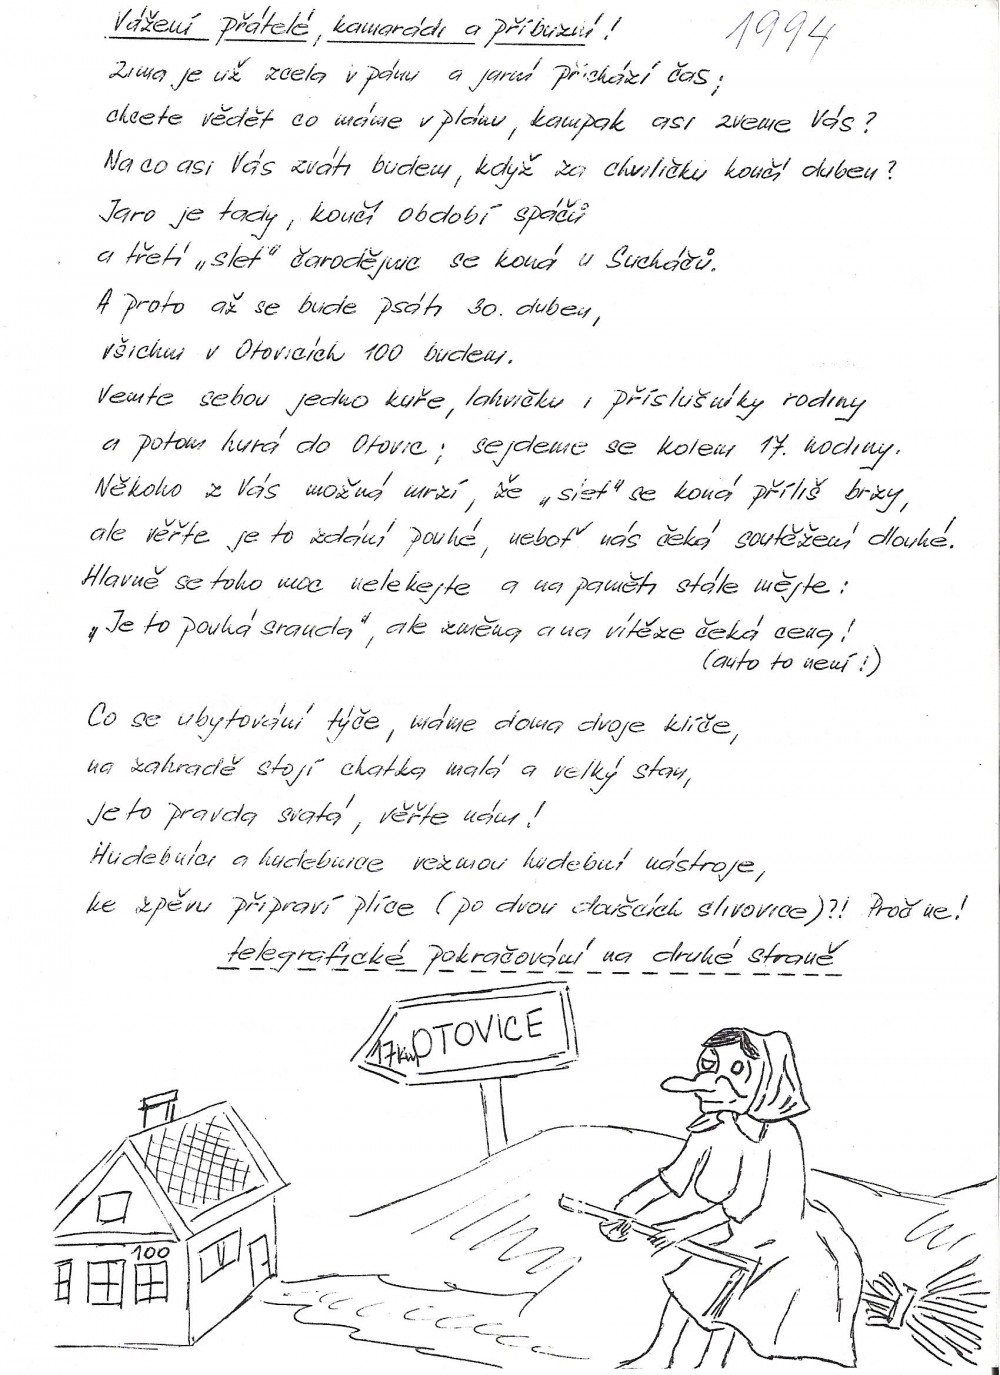 Vážení přátelé, kamarádi a příbuzní!
1994
Zima je už zcela v pánu a jarní přichází čas;
chcete vědět co máme v plánu, kampak asi zveme Vás?
Na co asi Vás zváti budem, když za chviličku končí duben?
Jaro je tady, končí období spáčů
a třetí „slet“ čarodějnic se koná u Sucháčů.
A proto až se bude psáti 30. duben,
všichni v Otovicích 100 budem.
Vemte sebou jedno kuře, lahvičku i příslušníky rodiny
a potom hurá do Otovic; sejdeme se kolem 17. hodiny.
Někoho z Vás možná mrzí, že „slet“ se koná příliš brzy,
ale věřte je to zdání pouhé, neboť nás čeká soutěžení dlouhé.
Hlavně se toho moc nelekejte a na paměti stále mějte:
„Je to pouhá sranda“, ale změna a na vítěze čeká cena!
(auto to není!)
Co se ubytování týče, máme doma dvoje klíče,
na zahradě stojí chatka malá a velký stan,
je to pravda svatá, věřte nám!
Hudebníci a hudebnice vezmou hudební nástroje,
ke zpěvu připraví plíce (po dvou doušcích slivovice)?! Proč ne!
telegrafické pokračování na druhé straně
17 km OTOVICE
100